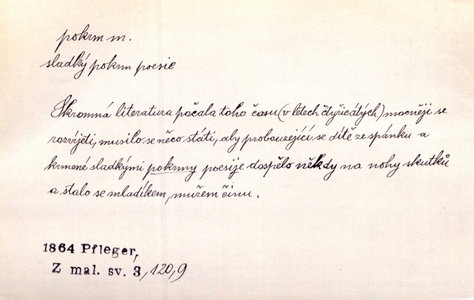 pokrm m.
sladký pokrm poesie
Skromná literatura počala toho času (v letech čtyřicátých) mocněji se
rozvíjeti, musilo se něco státi, aby probouzející se dítě ze spánku a
krmené sladkými pokrmy poesije dospělo někdy na nohy skutků
a stalo se mladíkem, mužem činu.
1864 Pfleger,
Z mal. sv. 3, 120, 9